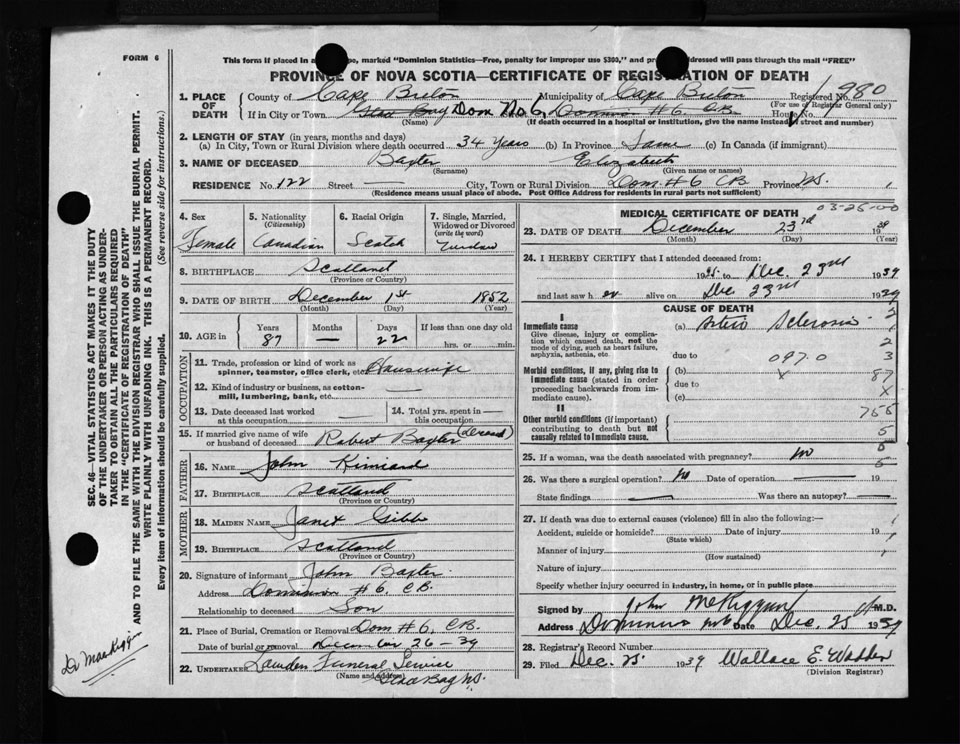 FORM 6
This form if placed in a pe, marked "Dominion Statistics—Free, penalty for improper use $300," and pr dressed will pass through the mail "FREE"
PROVINCE OF NOVA SCOTIA—CERTIFICATE OF REGISTRATION OF DEATH
1. PLACE OF DEATH County of Cape Breton Municipality of Cape Breton Registered No. 980
(For use of Registrar General only)
If in City or Town Glace Bay Dom No 6 Dominion #6 C.B. House No.
(Name) (If death occurred in a hospital or institution, give the name instead of street and number)
2. LENGTH OF STAY (in years, months and days)
(a) In City, Town or Rural Division where death occurred 34 Years (b) In Province Same (c) In Canada (if immigrant)
3. NAME OF DECEASED Baxter Elizabeth
(Surname) (Given name or names)
RESIDENCE No. 122 Street — City, Town or Rural Division Dom #6 CB Province NS.
(Residence means usual place of abode. Post Office Address for residents in rural parts not sufficient)
4. Sex Female
5. Nationality (Citizenship) Canadian
6. Racial Origin Scotch
7. Single, Married, Widowed or Divorced (write the word)
8. BIRTHPLACE Scotland
(Province or Country)
9. DATE OF BIRTH December 1st 1852
(Month) (Day) (Year)
10. AGE in Years 87 Months — Days 22 If less than one day old hrs. or min.
OCCUPATION
11. Trade, profession or kind of work as spinner, teamster, office clerk, etc. Housewife
12. Kind of industry or business, as cotton-mill, lumbering, bank, etc. —
13. Date deceased last worked at this occupation —
14. Total yrs. spent in this occupation —
15. If married give name of wife or husband of deceased Robert Baxter
FATHER
16. NAME John
17. BIRTHPLACE Scotland
(Province or Country)
MOTHER
18. MAIDEN NAME Janet Gibb
19. BIRTHPLACE Scotland
(Province or Country)
20. Signature of informant John Baxter
Address Dominion #6. C.B.
Relationship to deceased Son
21. Place of Burial, Cremation or Removal Dom #6, C.B.
Date of burial or removal December 26-39
22. UNDERTAKER Funeral Service
(Name and address) Glace Bay NS.
MEDICAL CERTIFICATE OF DEATH 03-25-00
23. DATE OF DEATH December 23rd 1939
(Month) (Day) (Year)
24. I HEREBY CERTIFY that I attended deceased from
19 to Dec. 23rd 1939
and last saw h er alive on Dec 23rd 1939
CAUSE OF DEATH
I
Immediate cause
Give disease, injury or complication which caused death, not the mode of dying, such as heart failure, asphyxia, asthenia, etc.
(a) Arterio Sclerosis
due to
Morbid conditions, if any, giving rise to immediate cause (stated in order proceeding backwards from immediate cause)
(b) 097.0
due to X
(c)
II
Other morbid conditions (if important) contributing to death but not causally related to immediate cause.
2
2
3
87
X
5
25. If a woman, was the death associated with pregnancy? no
26. Was there a surgical operation? no Date of operation — 19
State findings — Was there an autopsy? —
27. If death was due to external causes (violence) fill in also the following:—
Accident, suicide or homicide? Date of injury 19
(State which)
Manner of injury
(How sustained)
Nature of injury
Specify whether injury occurred in industry, in home, or in public place
Signed by John M.D.
Address Dominion No 6 Date Dec. 25 1939
28. Registrar's Record Number
29. Filed Dec. 25 1939 Wallace E.
(Division Registrar)
SEC. 46—VITAL STATISTICS ACT MAKES IT THE DUTY
OF THE UNDERTAKER OR PERSON ACTING AS UNDER-
TAKER TO OBTAIN ALL THE PARTICULARS REQUIRED
IN THE "CERTIFICATE OF REGISTRATION OF DEATH"
AND TO FILE THE SAME WITH THE DIVISION REGISTRAR WHO SHALL ISSUE THE BURIAL PERMIT.
WRITE PLAINLY WITH UNFADING INK. THIS IS A PERMANENT RECORD.
Every item of information should be carefully supplied. (See reverse side for instructions.)